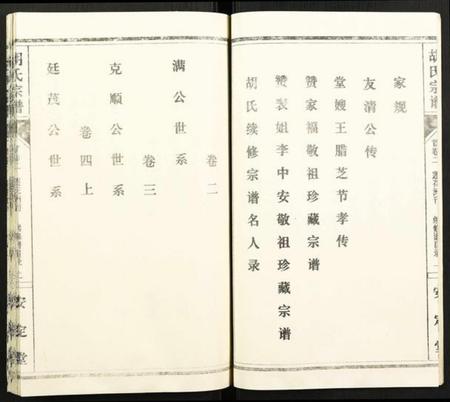 胡氏宗谱
安定堂
家规
友清公传
堂嫂王腊芝节孝传
赞家福敬祖珍藏宗谱
赞表姐李中安敬祖珍藏宗谱
胡氏续修宗谱名人录
卷二
满公世系
卷三
克顺公世系
卷四上
廷茂公世系
胡氏宗谱
安定堂